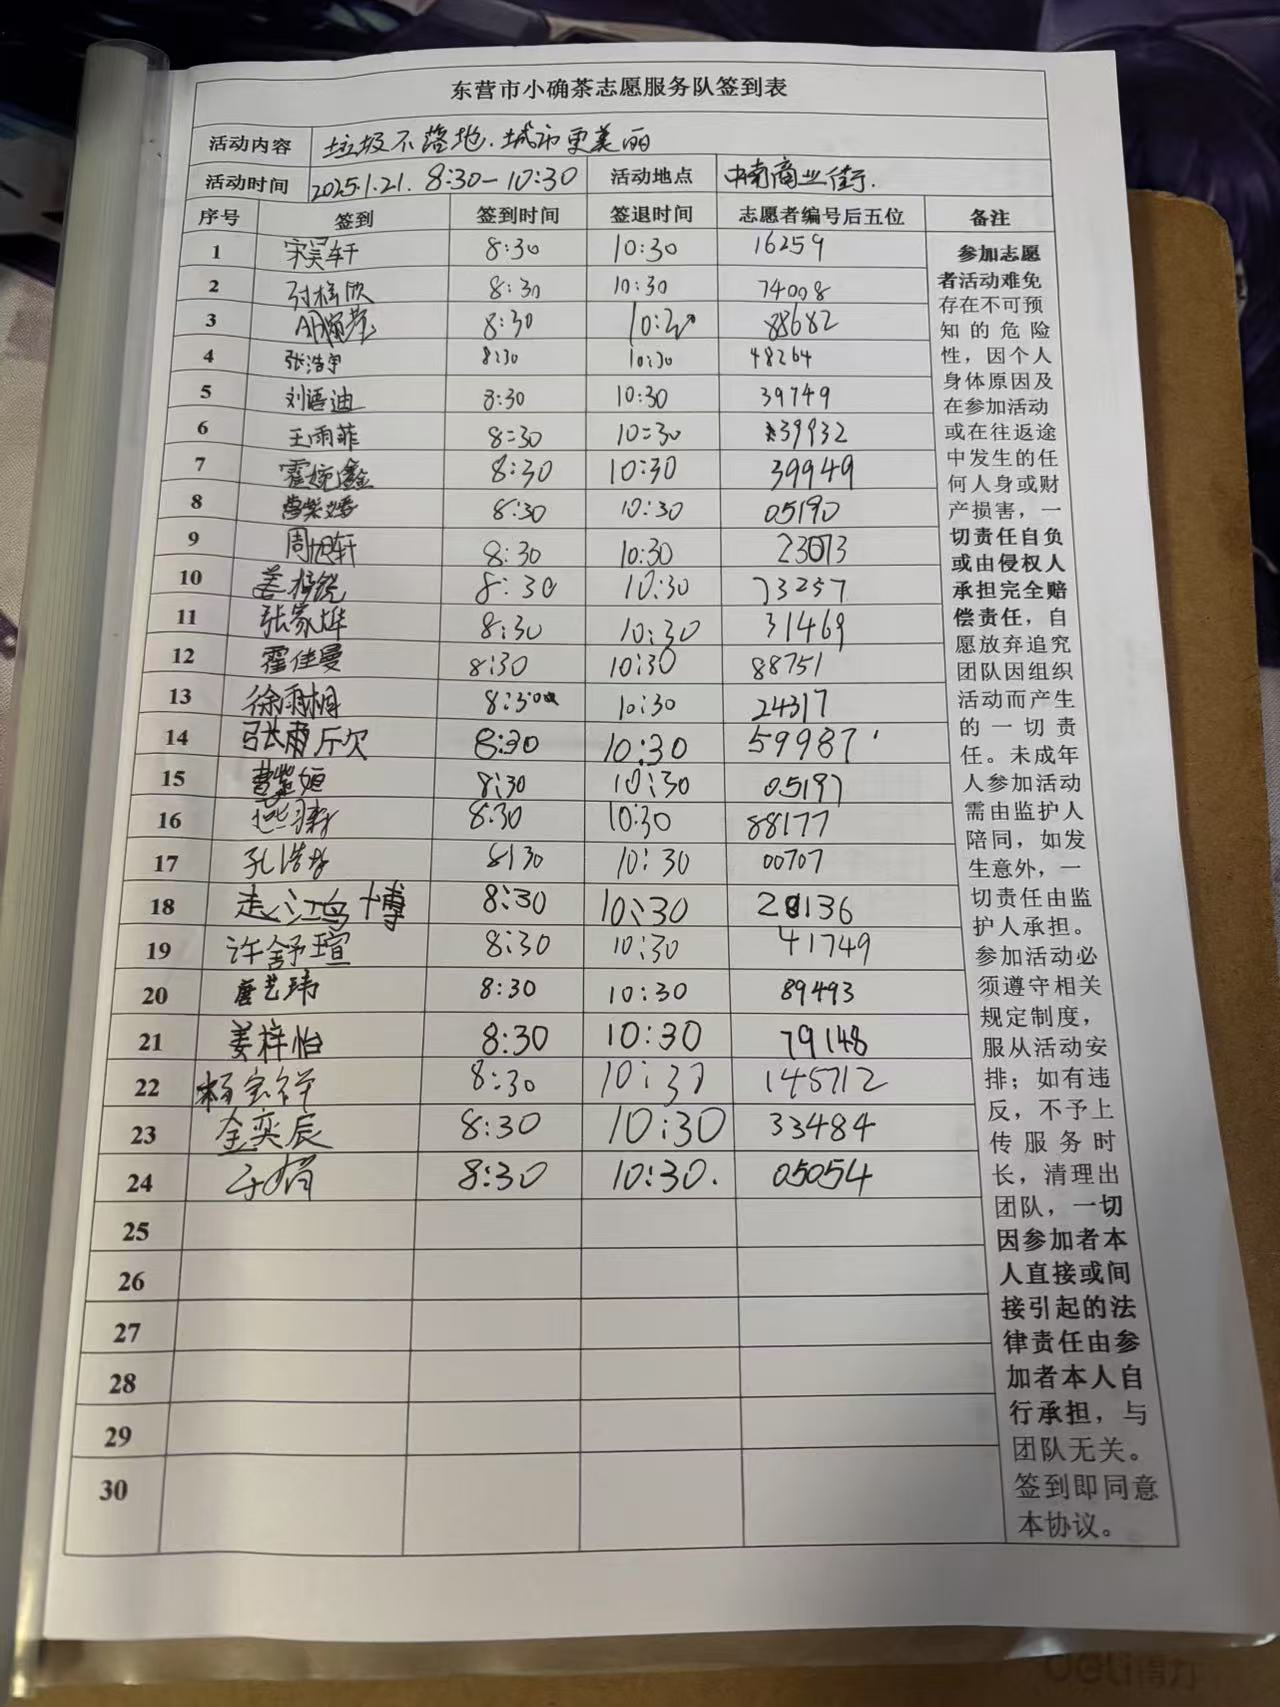 东营市小确茶志愿服务队签到表
活动内容 垃圾不落地.城市更美丽
活动时间 2025.1.21. 8:30-10:30 活动地点 中南商业街.
序号 签到 签到时间 签退时间 志愿者编号后五位 备注
1 宋昊轩 8:30 10:30 16259
2 8:30 10:30 74008
3 8:30 88682
4 张浩宇 8:30 10:30 48264
5 刘语迪 8:30 10:30 39749
6 王雨菲 8:30 10:30 39932
7 霍婉鑫 8:30 10:30 39949
8 8:30 10:30 05190
9 周旭轩 8:30 10:30 23073
10 姜梓锐 8:30 10:30 73257
11 张家烨 8:30 10:30 31469
12 霍佳曼 8:30 10:30 88751
13 徐雨桐 8:30 10:30 24317
14 张雨昕 8:30 10:30 59987
15 8:30 10:30 05197
16 8:30 10:30 88177
17 孔浩 8:30 10:30 00707
18 赵鸿博 8:30 10:30 20136
19 许舒瑄 8:30 10:30 41749
20 唐艺玮 8:30 10:30 89493
21 姜梓怡 8:30 10:30 79148
22 杨宝祥 8:30 10:30 145712
23 金奕辰 8:30 10:30 33484
24 于娟 8:30 10:30. 05054
25
26
27
28
29
30
参加志愿
者活动难免
存在不可预
知的危险
性，因个人
身体原因及
在参加活动
或在往返途
中发生的任
何人身或财
产损害，一
切责任自负
或由侵权人
承担完全赔
偿责任，自
愿放弃追究
团队因组织
活动而产生
的一切责
任。未成年
人参加活动
需由监护人
陪同，如发
生意外，一
切责任由监
护人承担。
参加活动必
须遵守相关
规定制度，
服从活动安
排；如有违
反，不予上
传服务时
长，清理出
团队，一切
因参加者本
人直接或间
接引起的法
律责任由参
加者本人自
行承担，与
团队无关。
签到即同意
本协议。
deli得力